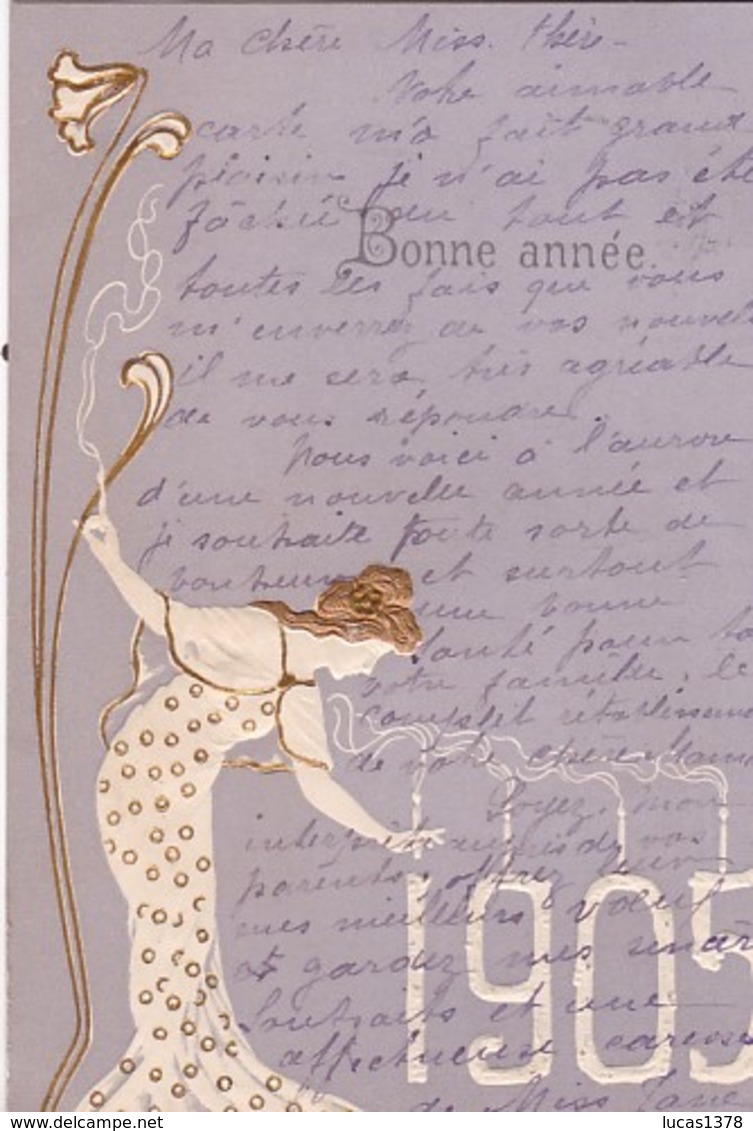 Ma chère Miss. Thère-
Votre aimable
carte m'a fait grand
plaisir je n'ai pas été
fâché du tout et
Bonne année.
toutes les fois que vous
m'enverrez de vos nouvel
il me sera très agréable
de vous répondre.
Nous voici à l'aurore
d'une nouvelle année et
je souhaite toute sorte de
bonheur et surtout
une bonne
santé pour to
votre famille, le
complet rétablisseme
de votre chère Mam
Soyez, mon
interprète auprès de vos
parents, offrez leur
mes meilleurs voeux
et gardez mes sincèr
souhaits et une
affectueuse caresse
de Miss Jane
1905
lucas1378